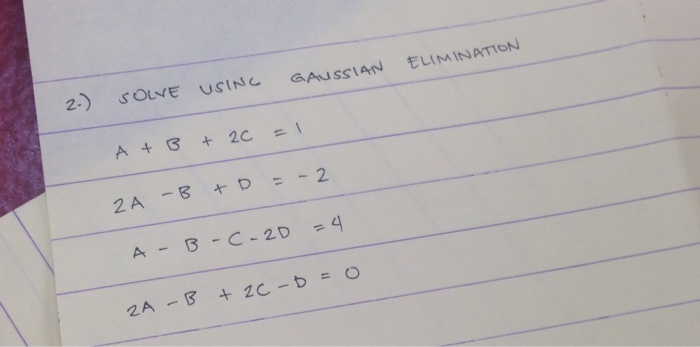 2.) SOLVE USING GAUSSIAN ELIMINATION
A + B + 2C = 1
2A - B + D = - 2
A - B - C - 2D = 4
2A - B + 2C - D = 0